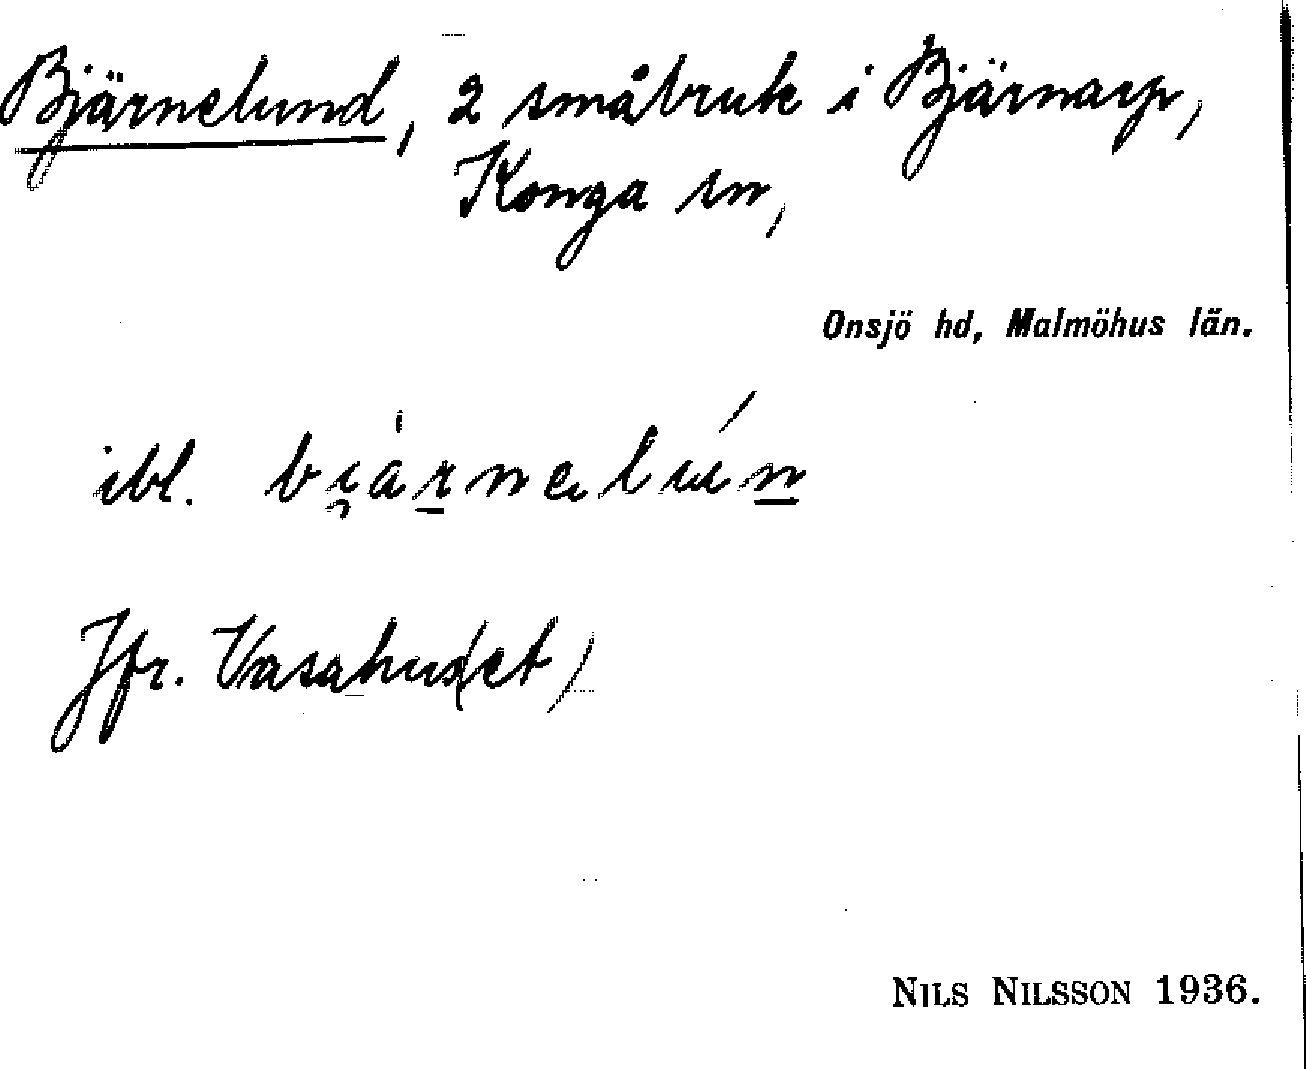 Bjärnelund, 2 småbruk i Bjärnarp,
Konga sn,
Onsjö hd, Malmöhus län.
ibl. bi̯ä̀r̠nelún̠
Jfr. Vasahus(et)
NILS NILSSON 1936.